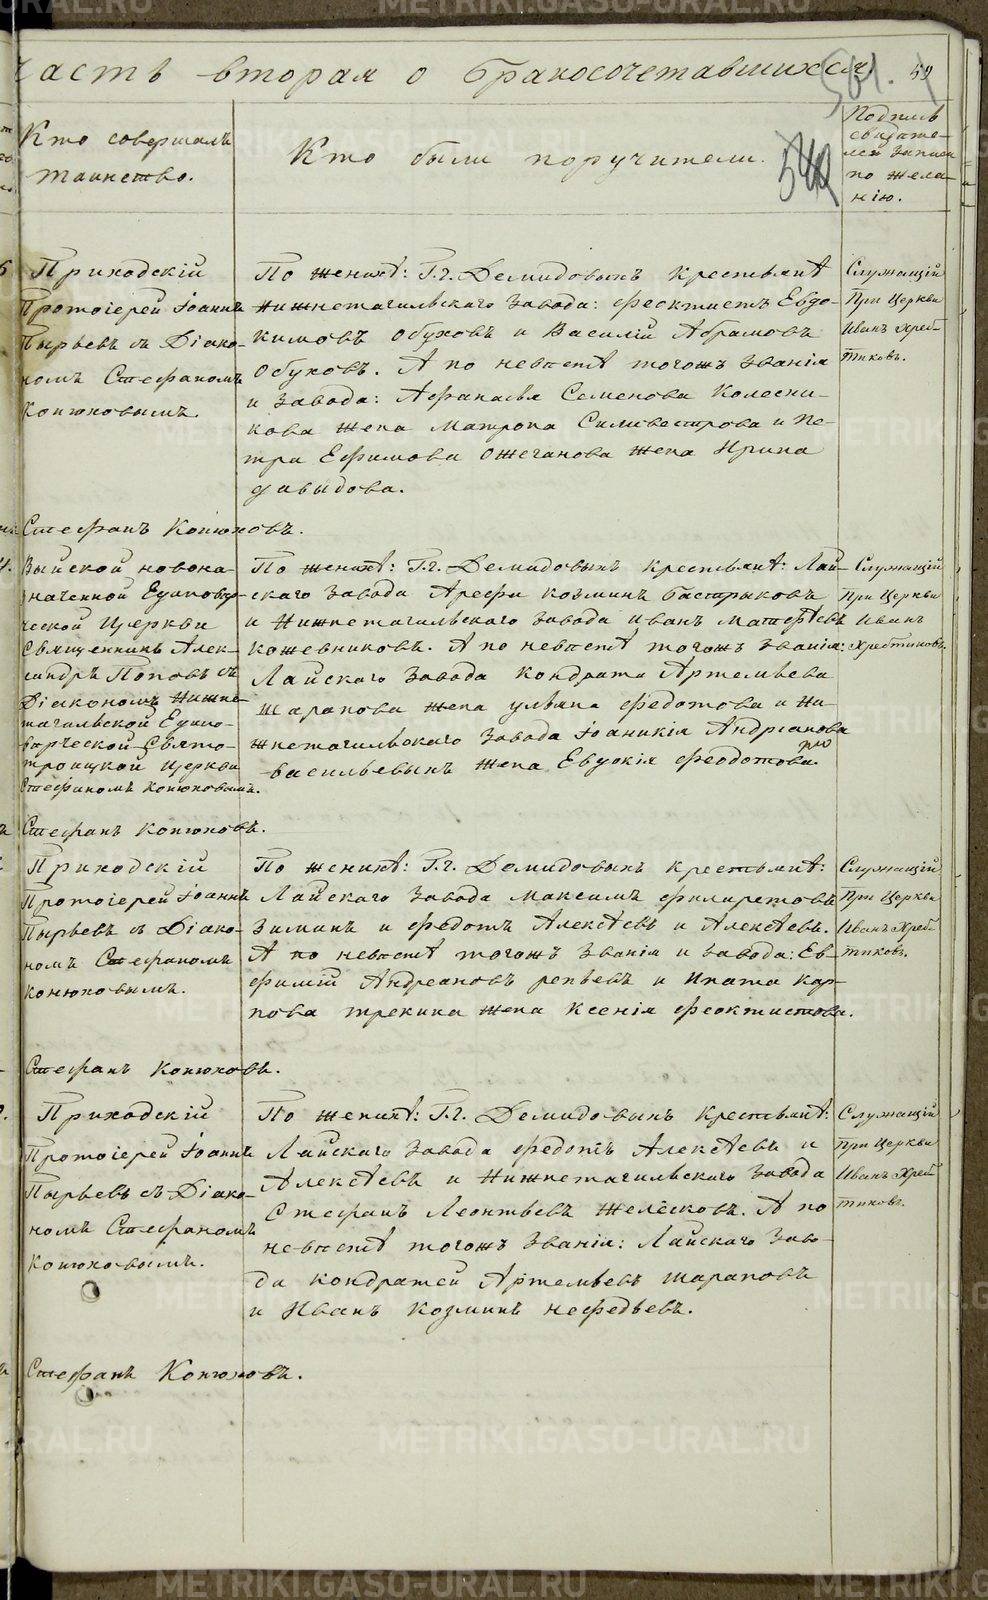 Часть вторая о бракосочетавшихся
501.
59
Кто совершалъ
таинство.
Кто были поручители.
Подпись
свидѣте-
лей записи
по жела-
нію.
Приходскій
Протоіерей Іоаннъ
Пырьевъ съ Діако-
номъ Стефаномъ
Конюховымъ.
По женихѣ: Г.г. Демидовыхъ крестьянѣ
Нижнетагильскаго завода: Феоктистъ Евдо-
кимовъ Обуховъ и Василій Абрамовъ
Обуховъ. А по невѣстѣ тогожъ званія
и завода: Афанасья Семенова Колесни-
кова жена Матрона Силивестрова и Пе-
тра Ефимова Ожеганова жена Ирина
Давыдова.
Служащій
При Церкви
Иванъ Хреб-
тиковъ.
Стефанъ Конюховъ.
Выйской новона-
значенной Единовѣр-
ческой Церкви
Священникъ Алек-
сандръ Поповъ съ
Діакономъ Нижне-
тагильской Едино-
вѣрческой Свято-
троицкой Церкви
Стефаномъ Конюховымъ.
По женихѣ: Г.г. Демидовыхъ крестьянѣ: Лай-
скаго завода Арефа Козминъ Бастрыковъ
и Нижнетагильскаго завода Иванъ Матвѣевъ
Кожевниковъ. А по невѣстѣ тогожъ званія:
Лайскаго завода Кондрата Артемьева
Шарапова жена Ульяна Федотова и Ни-
жнетагильскаго завода Іоаникія Андріанова
Васильевыхъ жена Евдокія Феодотова.
Служащій
При Церкви
Иванъ
Хребтиковъ.
Стефанъ Конюховъ.
Приходскій
Протоіерей Іоаннъ
Пырьевъ съ Діако-
номъ Стефаномъ
Конюховымъ.
По женихѣ: Г.г. Демидовыхъ крестьянѣ:
Лайскаго завода Максимъ Филаретовъ
Зиминъ и Федотъ Алексѣевъ и Алексѣевъ.
А по невѣстѣ тогожъ званія и завода: Ев-
фимій Андреановъ Репьевъ и Ипата Кар-
пова Трекина жена Ксенія Феоктистова.
Служащій
При Церкви
Иванъ Хреб-
тиковъ.
Стефанъ Конюховъ.
Приходскій
Протоіерей Іоаннъ
Пырьевъ съ Діако-
номъ Стефаномъ
Конюховымъ.
По женихѣ: Г.г. Демидовыхъ крестьянѣ:
Лайскаго завода Федотъ Алексѣевъ и
Алексѣевъ и Нижнетагильскаго завода
Стефанъ Леонтьевъ Желѣсковъ. А по
невѣстѣ тогожъ званія: Лайскаго заво-
да Кондратей Артемьевъ Шараповъ
и Иванъ Козминъ Нефедьевъ.
Служащій
При Церкви
Иванъ Хреб-
тиковъ.
Стефанъ Конюховъ.
METRIKI.GASO-URAL.RU